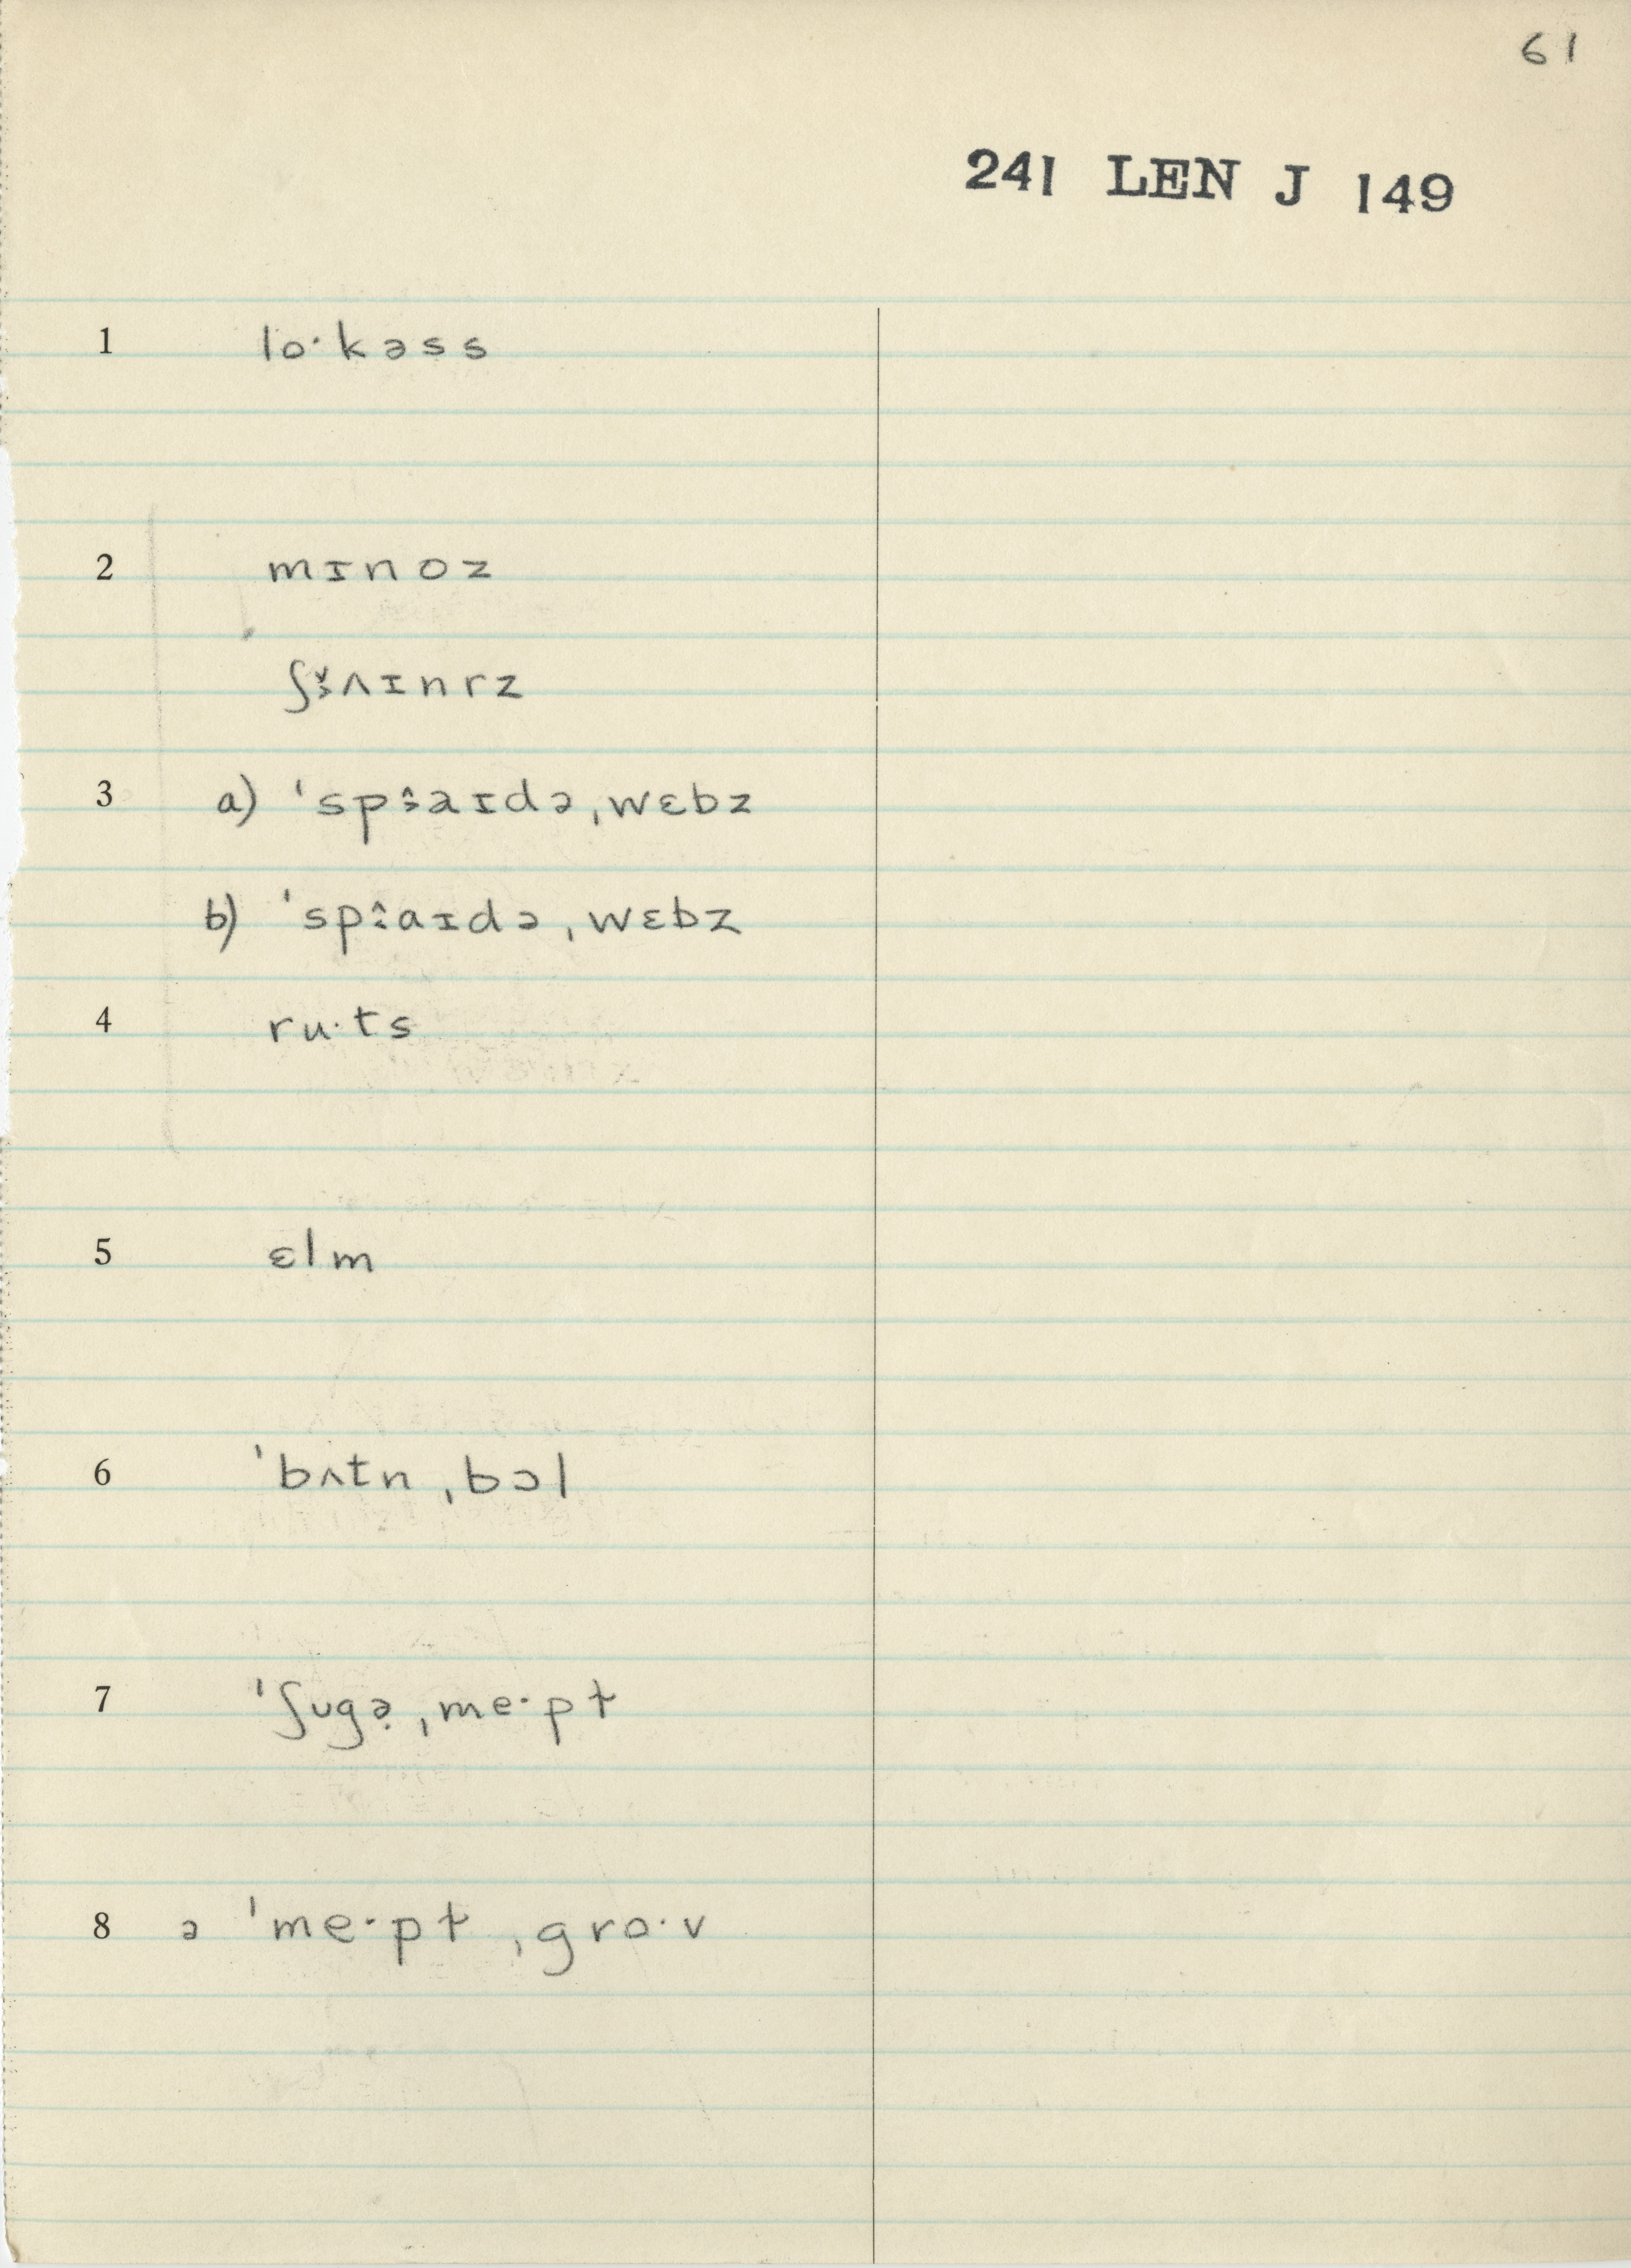 61
241 LEN J 149
1 lo·kəss
2 mɪnoz
ʃɜ̌ʌɪnrz
3 a) ˈspɜ̂aɪdəˌwɛbz
b) ˈspɜ̂aɪdəˌwɛbz
4 ru·ts
5 ɛlm
6 ˈbʌtnˌbɔl
7 ˈʃugə̣ˌme·pɫ
8 ə ˈme·pɫˌgro·v